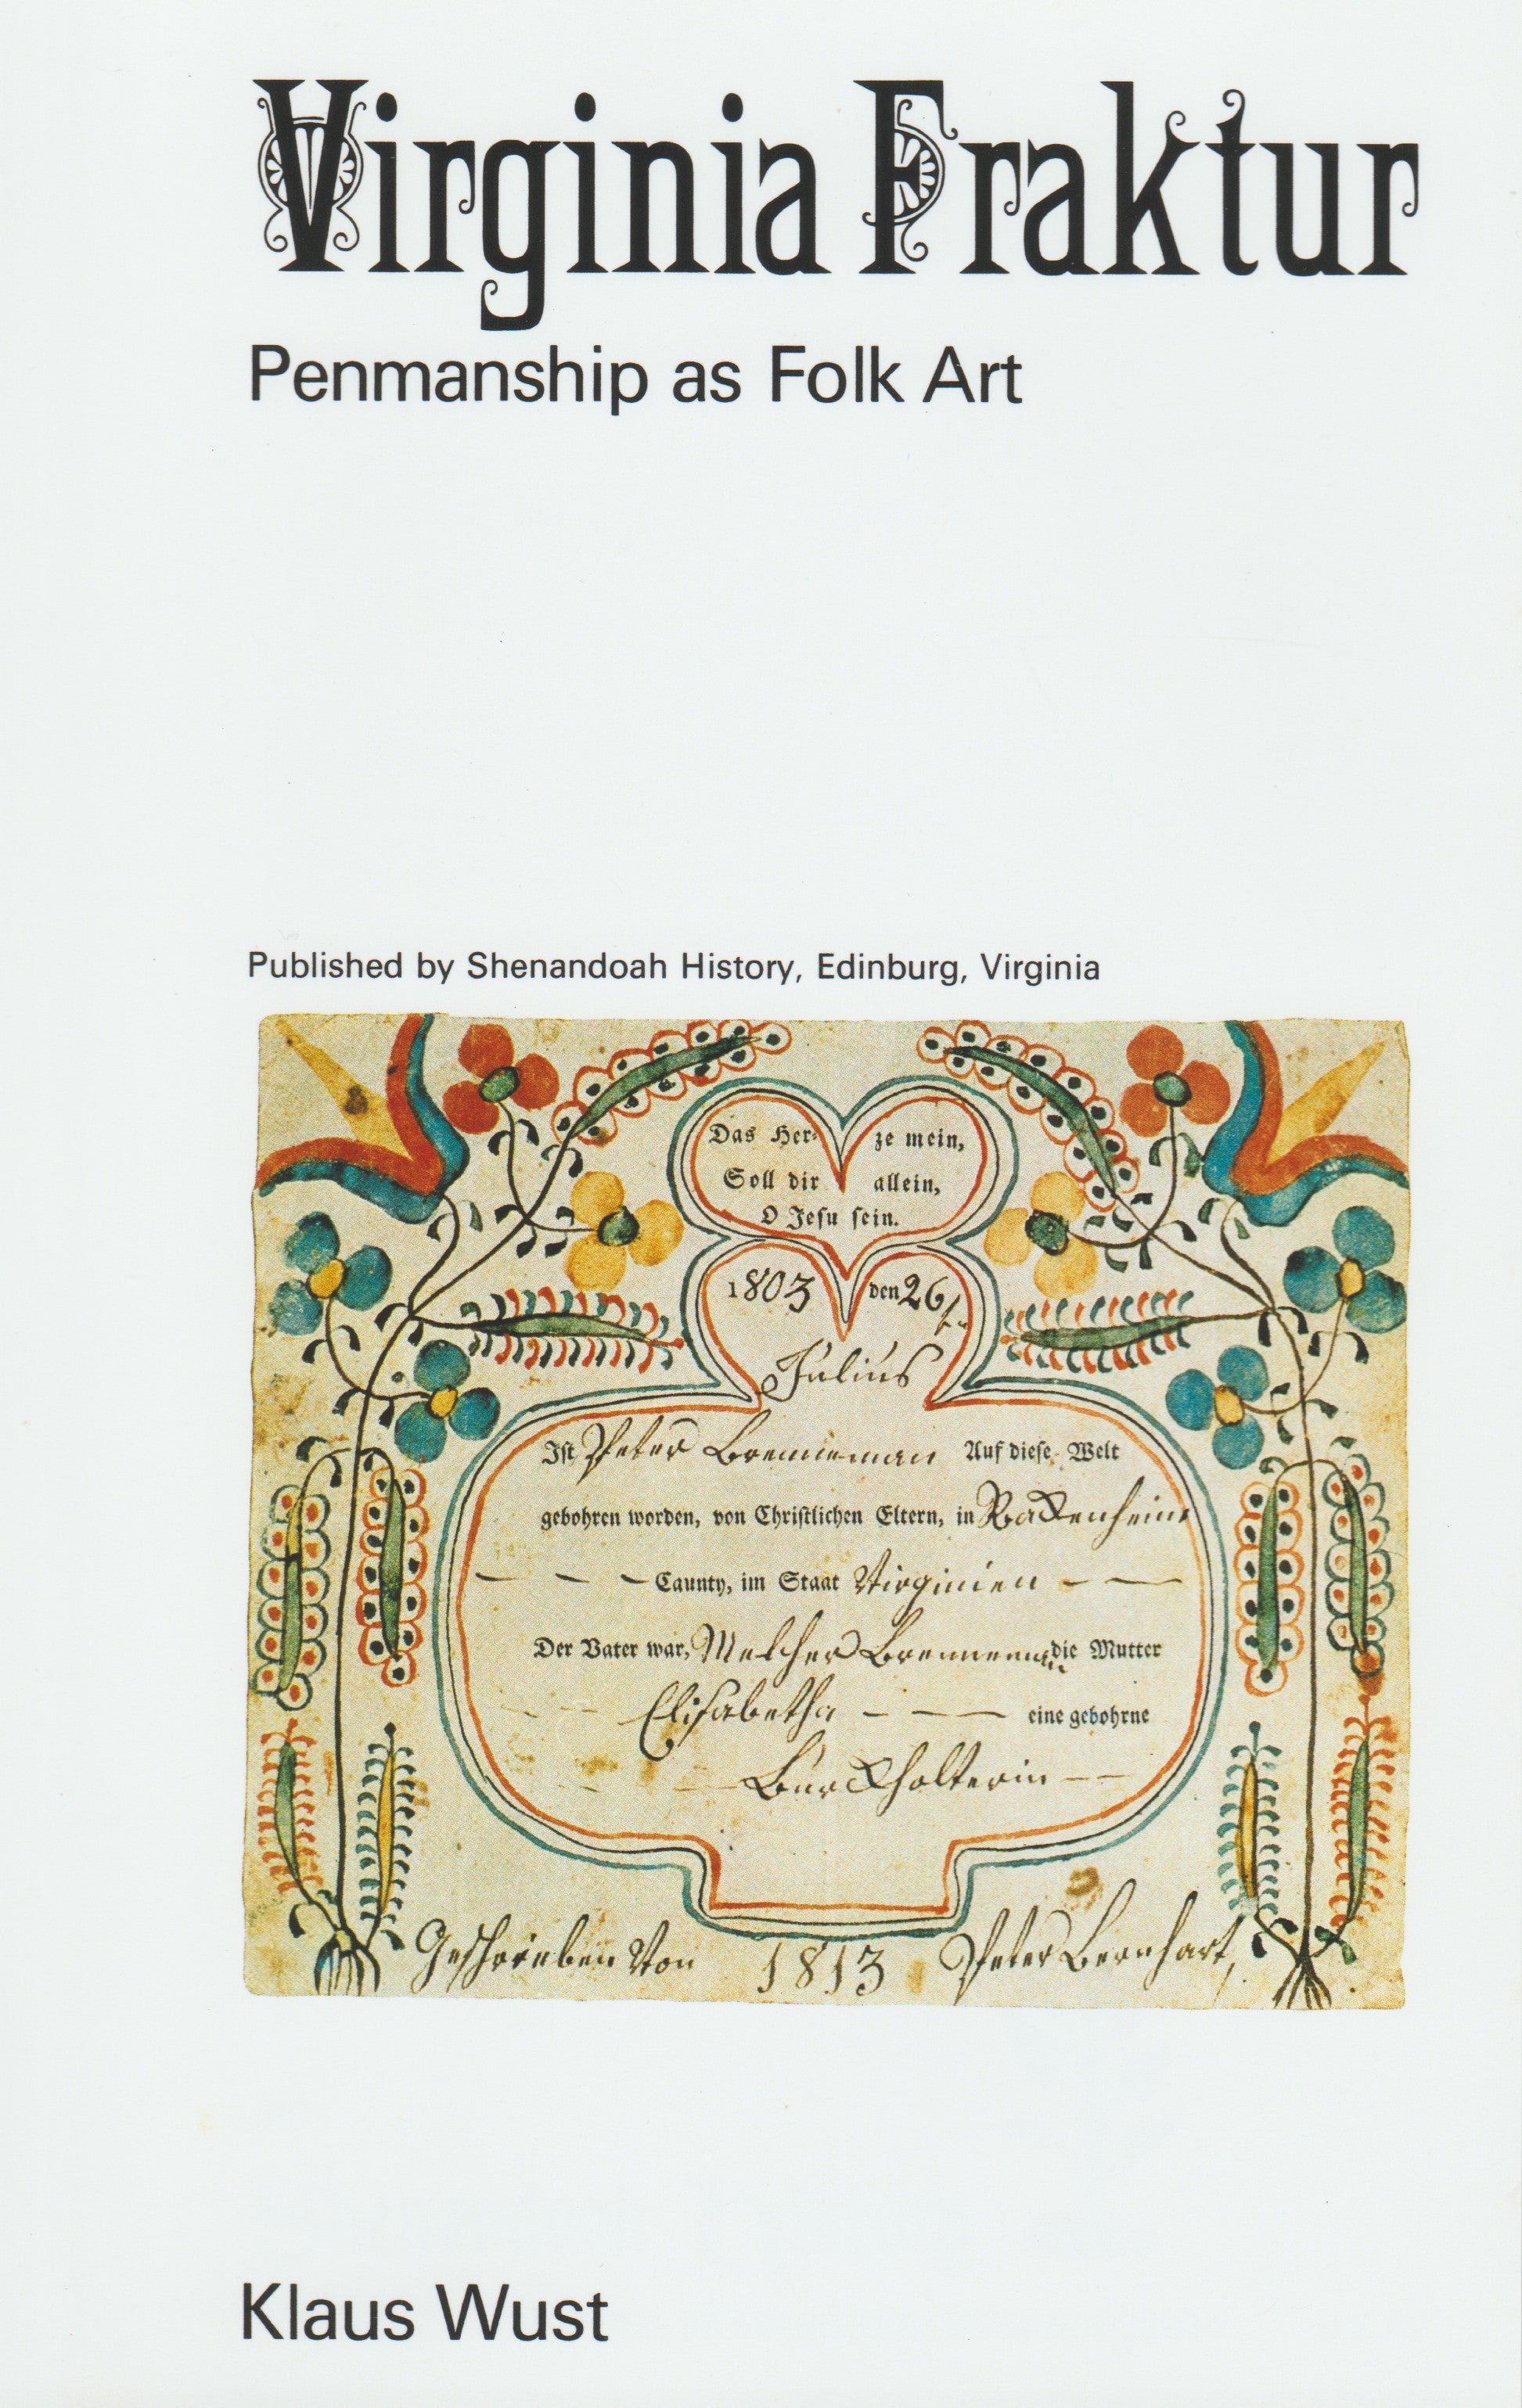 Virginia Fraktur
Penmanship as Folk Art
Published by Shenandoah History, Edinburg, Virginia
Das Her⸗ ze mein,
Soll dir allein,
O Jesu sein.
1803 den 26t.
Julius
Ist Peter Brenneman Auf diese Welt
gebohren worden, von Christlichen Eltern, in Rackenheim
— — — Caunty, im Staat Virginien — —
Der Vater war, Melcher Brenneman die Mutter
— — Elisabetha — — — eine gebohrne
— — — Burckholterin — —
Geschrieben Von 1813 Peter Bernhart,
Klaus Wust